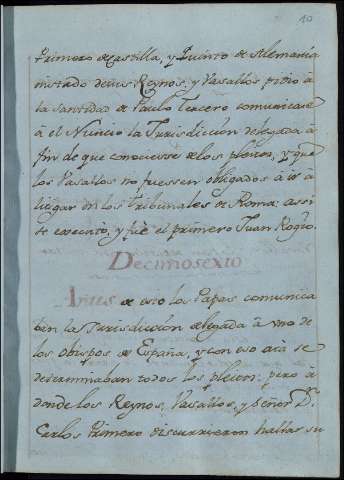 10
Primero de Castilla, y Quinto de Alemania
instado de sus Reynos, y Vasallos pidio à
la Santidad de Paulo Tercero comunicase
à el Nuncio la Jurisdiccion delegada à
fin de que conociesse de los pleitos, y que
los Vasallos no fuessen obligados à ir à
litigar en los Tribunales de Roma: assi
se executò, y fuè el primero Juan Pogio.
Decimosexto
Antes de esto los Papas comunica
ban la Jurisdiccion delegada à uno de
los obispos de España, y con eso acà se
determinaban todos los pleitos: pero à
donde los Reynos, Vasallos, y Señor Dn.
Carlos Primero discurrieron hallar su